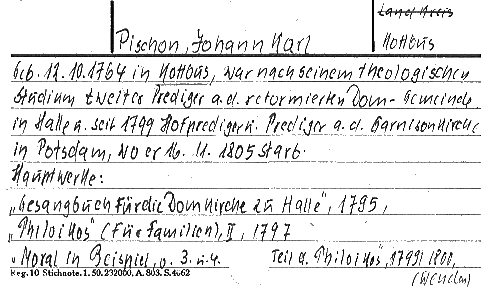 Land Kreis
Pischon, Johann Karl
Kottbus
Geb. 12.10.1764 in Kottbus, war nach seinem theologischen
Studium zweiter Prediger a.d. reformierten Dom-Gemeinde
in Halle u. seit 1799 Hofprediger u. Prediger a.d. Garnisonkirche
in Potsdam, wo er 16. 11. 1805 starb.
Hauptwerke:
„Gesangbuch für die Domkirche zu Halle", 1795,
„Philoikos" (Für Familien), II, 1797
„Moral in Beispiel, v. 3. u. 4. Teil d. Philoikos", 1799/1800,
Reg. 10 Stichnote. 1. 50. 232000, A. 803. S. 4662
(Wenden)